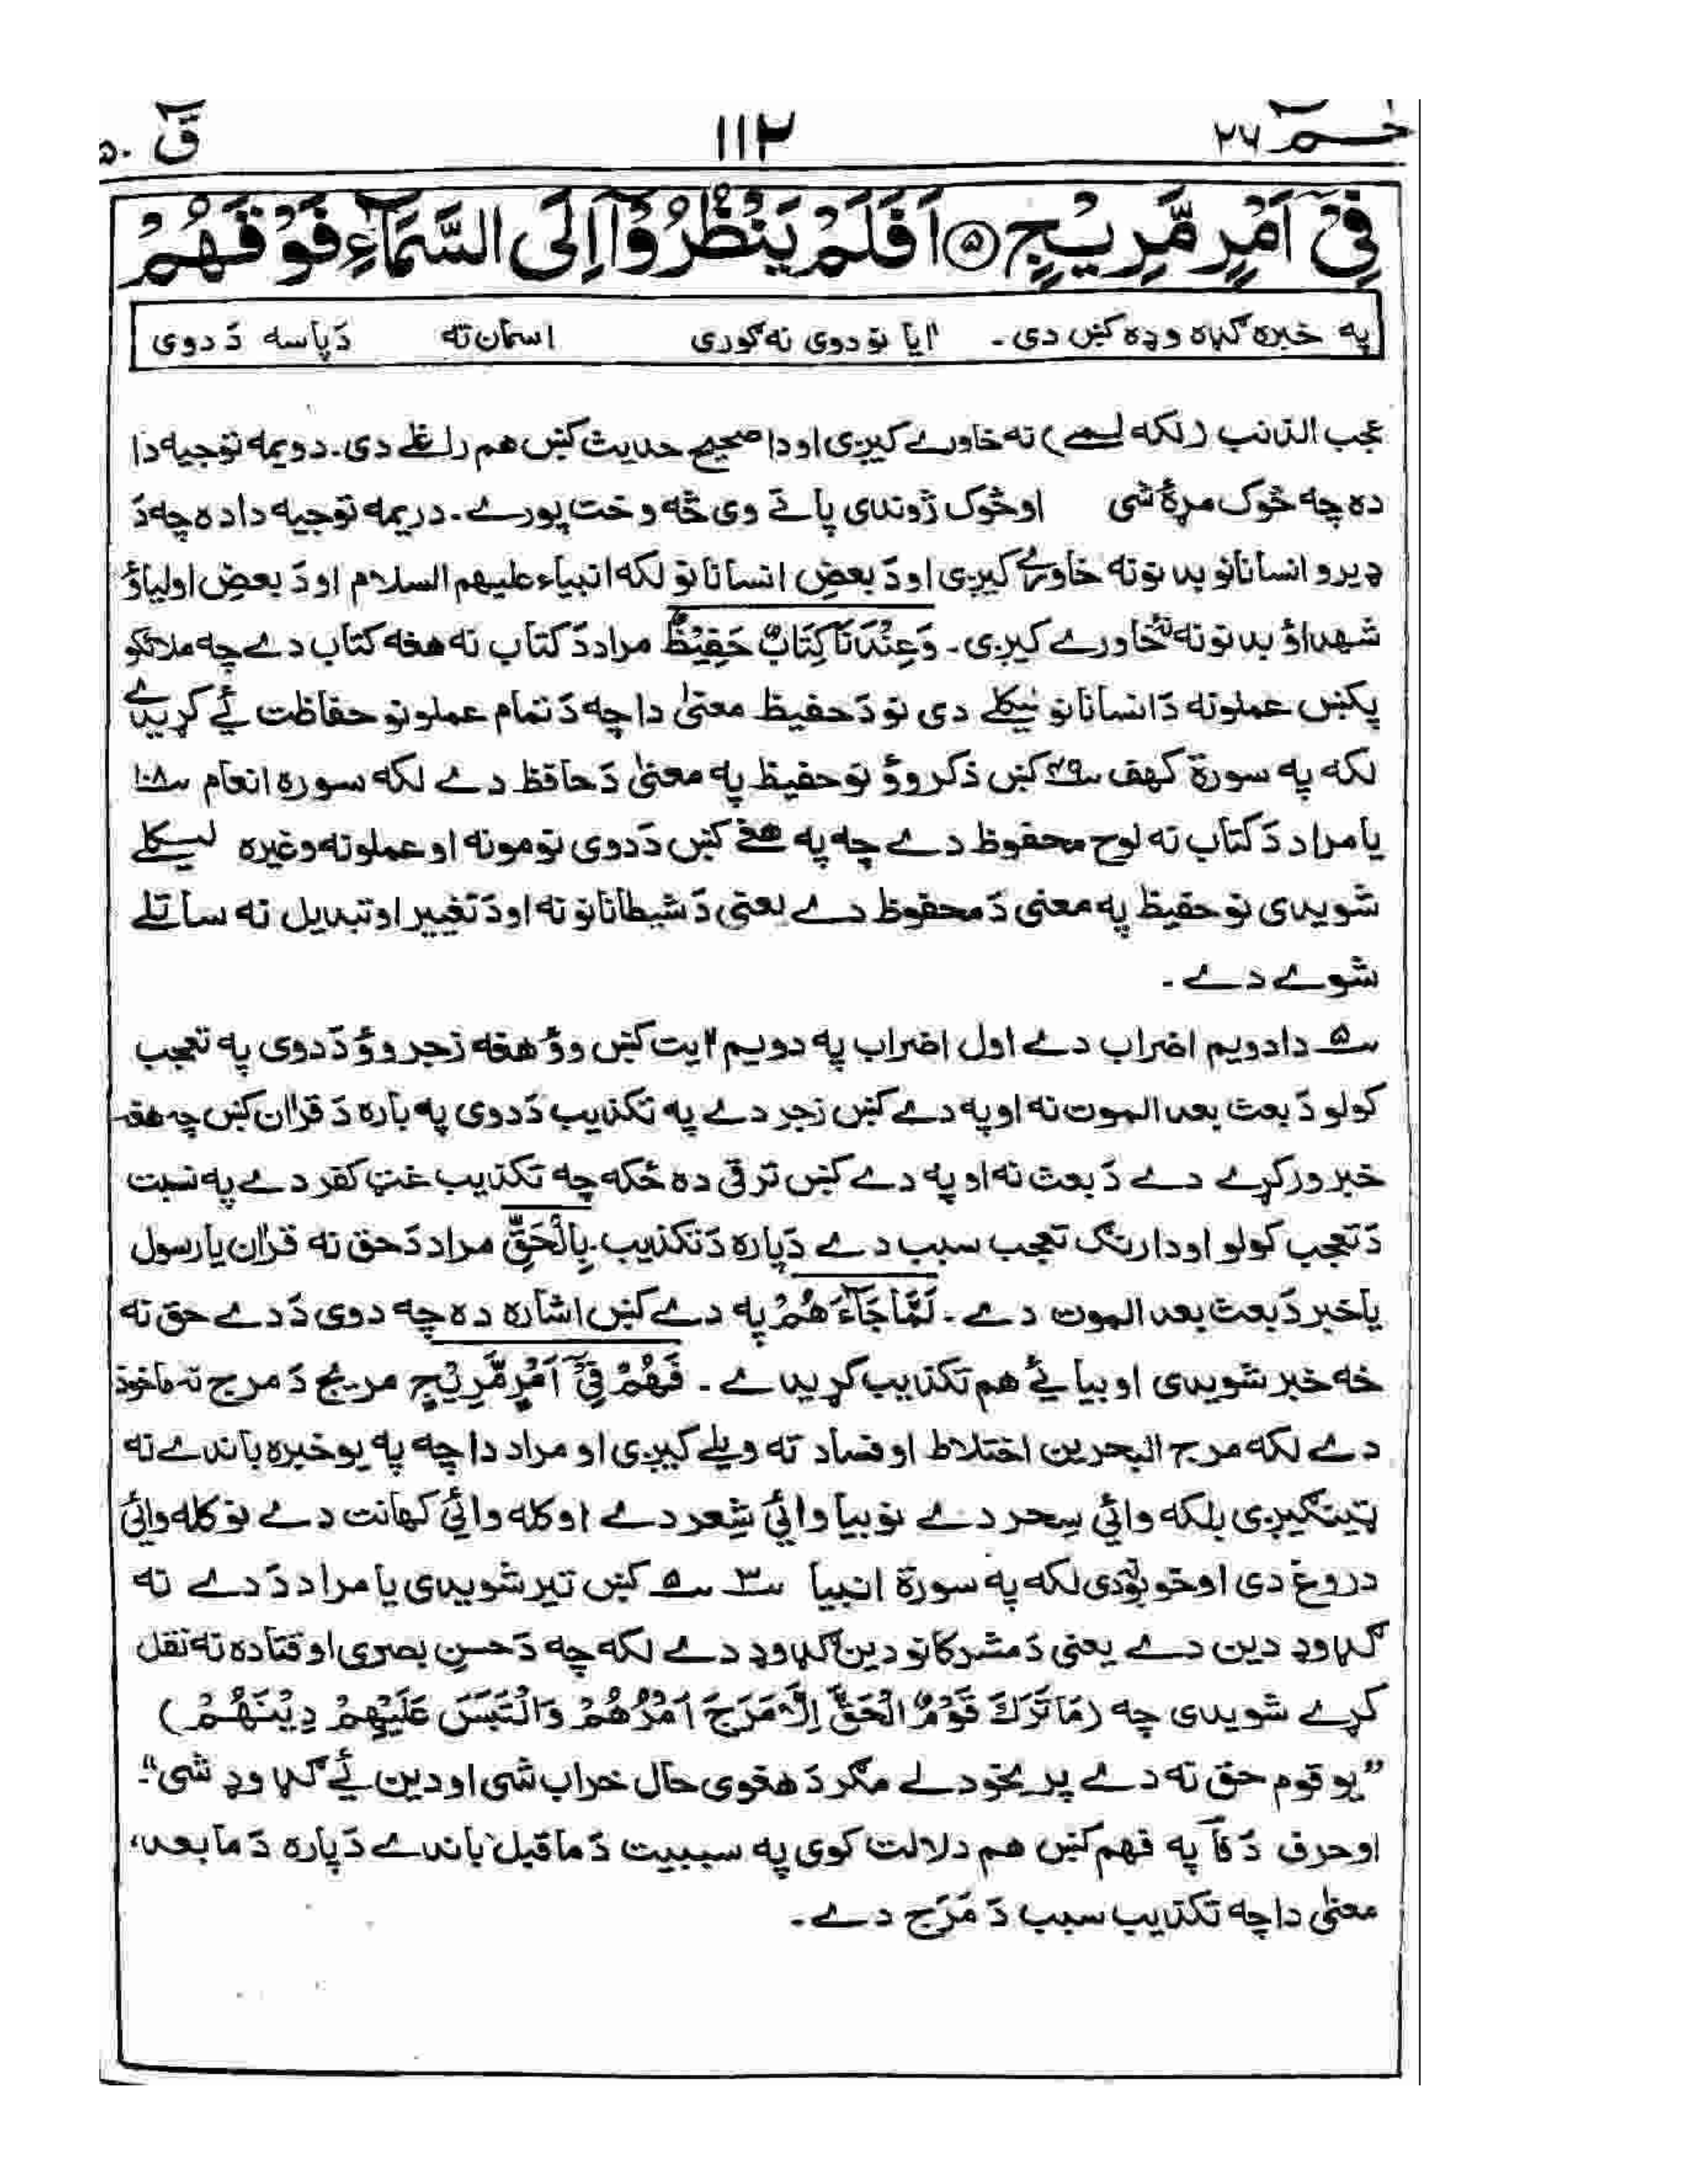 حٰم ٢٦ ١١٢ قٓ ٥٠
فِیْۤ اَمْرٍ مَّرِیْجٍ ۝۵ اَفَلَمْ یَنْظُرُوْۤا اِلَی السَّمَآءِ فَوْقَهُمْ
په خبره ګډه وډه کښ دی ۔ اٰیا نو دوی نه ګوری اسمان ته دَپاسه دَ دوی
عجب الذنب (لکه لمے) نه خاورے کیږی او دا صحیح حدیث کښ هم راغلے دی۔ دویمه توجیه دا
ده چه څوک مړهٔ شی او څوک ژوندی پاتے وی څه وخت پورے۔ دریمه توجیه داده چه دَ
ډیرو انسانانو بدنونه خاورے کیږی او دَ بعضِ انسانانو لکه انبیاء علیهم السلام او دَ بعضِ اولیاؤ
شهداؤ بدنونه نهٔ خاورے کیږی۔ وَعِنْدَنَا کِتَابٌ حَفِیْظٌ مراد دَ کتاب نه هغه کتاب دے چه ملائکو
پکښ عملونه دَ انسانانو لیکلے دی نو دَ حفیظ معنیٰ دا چه دَ تمام عملونو حفاظت ئے کړیدے
لکه په سورة کهف ؁۴۹ کښ ذکر وؤ نو حفیظ په معنیٰ دَ حافظ دے لکه سوره انعام ؁۱۰۸
یا مراد دَ کتاب نه لوح محفوظ دے چه په هغے کښ دَ دوی نومونه او عملونه وغیره لیکلے
شویدی نو حفیظ په معنی دَ محفوظ دے یعنی دَ شیطانانو نه او دَ تغییر او تبدیل نه ساتلے
شوے دے ۔
؁۵ دا دویم اضراب دے اول اضراب په دویم اٰیت کښ وؤ هغه زجر وؤ دَ دوی په تعجب
کولو دَ بعث بعد الموت نه او په دے کښ زجر دے په تکذیب دَ دوی په باره دَ قراٰن کښ چه هغه
خبر ورکړے دے دَ بعث نه او په دے کښ ترقی ده ځکه چه تکذیب غټ کفر دے په نسبت
دَ تعجب کولو او دارنګ تعجب سبب دے دَپاره دَ تکذیب۔ بِالْحَقِّ مراد دَ حق نه قراٰن یا رسول
یا خبر دَ بعث بعد الموت دے ۔ لَمَّا جَآءَهُمْ په دے کښ اشاره ده چه دوی دَ دے حق نه
خه خبر شویدی او بیا ئے هم تکذیب کړیدے ۔ فَهُمْ فِیْۤ اَمْرٍ مَّرِیْجٍ مریج دَ مرج نه ماخوذ
دے لکه مرج البحرین اختلاط او فساد ته ویلے کیږی او مراد دا چه په یو خبره باندے نه
ټینګیږی بلکه وائی سِحر دے نو بیا وائی شِعر دے او کله وائی کهانت دے نو کله وائی
دروغ دی او خوبونه دی لکه په سورة انبیا ؁۳ ؁۵ کښ تیر شویدی یا مراد دَ دے نه
ګډوډ دین دے یعنی دَ مشرکانو دین ګډوډ دے لکه چه دَ حسن بصری او قتاده نه نقل
کړے شویدی چه (مَا تَرَكَ قَوْمٌ الْحَقَّ اِلَّا مَرَجَ اَمْرُهُمْ وَالْتَبَسَ عَلَیْهِمْ دِیْنُهُمْ)
”یو قوم حق نه دے پریخودلے مګر دَ هغوی حال خراب شی او دین ئے ګډ وډ شی“۔
او حرف دَ فَا په فهم کښ هم دلالت کوی په سببیت دَ ماقبل باندے دَپاره دَ مابعد،
معنیٰ دا چه تکذیب سبب دَ مَرَج دے۔